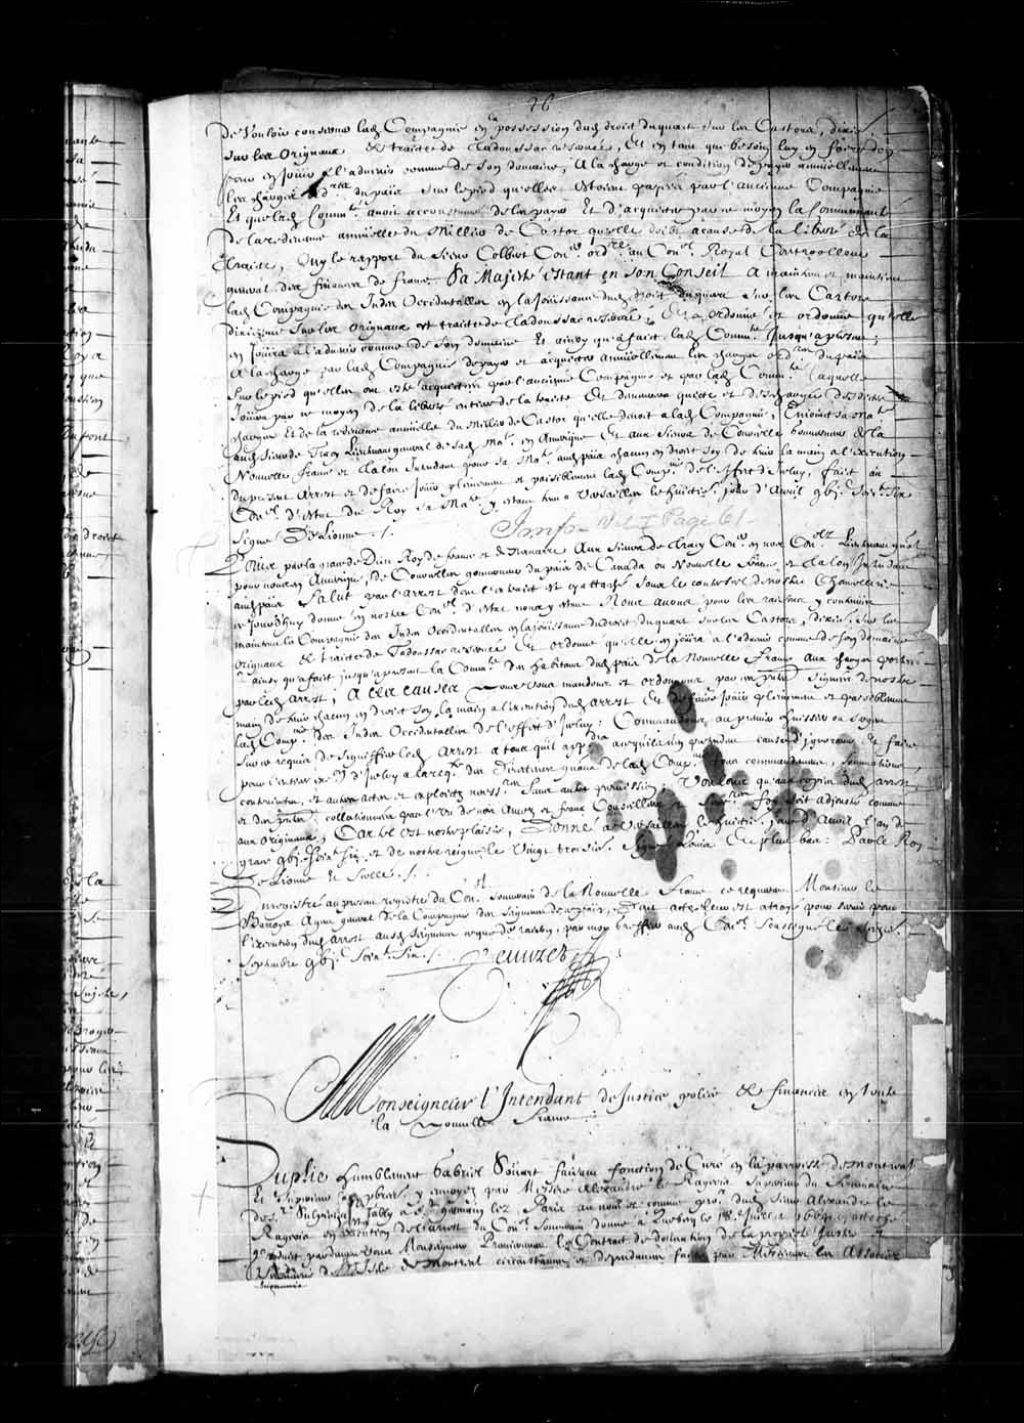 76
de Vouloir conserver lad. Compagnie en la possession dud. droit du quart sur les Castors, dixie.
sur les Orignaux et traitte de Tadoussac reservée, Et en tant que besoin luy en faire don
pour en Jouir et l'administrer comme de son domaine, A la charge et condition de payer annuellement
les charges ord.res du païs sur le pied qu'elles estoient payées par l'ancienne Compagnie
Et que lad. Commté avoit accoustumé de les payer Et d'acquiter par ce moyen la Communauté
de la redevance annuelle du Millier de Castor qu'elle doibt a cause de la liberté de la
traitte, Ouy le rapport du Sieur Colbert Con.er ord.re au Con.el Royal Controolleur
general des finances de france Sa Majesté estant en Son Conseil a maintenu et maintient
lad. Compagnie des Indes Occidentalles en la Jouissance dud. droit du quart sur les Castors
dixiesme sur les orignaux et traitte de Tadoussac reservée; Et a ordonné et ordonne qu'elle
en Jouira et l'administrer comme de son domaine Et ainsy qu'a fait lad. Commté Jusqu'a present;
A la charge par lad. Compagnie de payer et acquitter annuellement les charges ord.res du païs
sur le pied qu'elles ont esté acquittées par l'ancienne Compagnie et par lad. Comm.té laquelle
Jouira par ce moyen de la liberté entiere de la traitte Et demeurera quitte et deschargée desdites
charges Et de la redevance annuelle du Millier de Castor qu'elle devoit a lad. Compagnie, Enjoint sa Ma.té
aud. Sieur de Tracy Lieutenant general de sad. Ma.té en Amerique Et aux Sieurs de Courcelle Gouverneur de la
Nouvelle france et Talon Intendant pour sa Ma.té aud. païs chacun en droit soy de tenir la main a l'execution
du present Arrest et de faire Jouir plainement et paisiblement lad. Comp.ie de l'effect d'Iceluy, fait au
Con.el d'estat du Roy sa Ma.té y estant tenu a Versailles le huictie. jour d'Avril gbj.c Soix.te Six
Signé DeLionne ./.
Imp - Vol I Page 61
Louis par la grace de Dieu Roy de france et de Navarre Aux Sieurs de Tracy Con.er en nos Con.elz Lieutenant gn̄al
pour nous en Amerique, de Courcelles gouverneur du païs de Canada ou Nouvelle france et Talon Intendant
aud. païs Salut par l'arrest dont l'extrait est cy attaché soubz le contrescel de nostre Chancellerie
ce Jourd'huy donné en nostre Con.el d'estat nous y estant Nous avons pour les raisons y contenües
maintenu la Compagnie des Indes Occidentalles en la Jouissance du droit du quart sur les Castors, dixie. sur les
Orignaux Et traitte de Tadoussac reservée Et ordonné qu'elle en Jouira et l'administrer comme de son domaine
ainsy qu'a fait jusqu'a present la Comm.té des habitans dud. païs de la Nouvelle France Aux charges portées
par led. arrest; A ces causes Nous vous mandons et ordonnons par ces pntes signées de nostre
main de tenir chacun en droit soy la main a l'execution dud. arrest Et de faire Jouir plainement et paisiblement
lad. Comp.ie des Indes Occidentalles de l'effect d'Iceluy; Commandons au premier huissier ou sergent
sur ce requis de signiffier led. Arrest a tous qu'il app.dra a ce qu'ils n'en pretendent cause d'ignorance, Et faire
pour l'entiere ex.on d'iceluy a la req.te des Directeurs gn̄aux de lad. Comp.ie tous commandemens, sommations,
contraintes, et autres actes et exploits necess.res Sans autre permission; Voulons qu'aux copies dud. arrest
et des pntes, collationnées par l'un de nos Amez et feaux Conseillers et Secret.res foy soit adjoustée comme
aux Originaux, Car tel est nostre plaisir, Donné a Versailles le huictie. jour d'Avril l'an de
grace gbj.c Soix.te Six et de nostre regne le Vingt troisie. Signé Louis Et plus bas: Par le Roy
De Lionne Et scellé ./.
Enregistré au present registre du Con.el Souverain de la Nouvelle France ce requerant Monsieur le
Barroys Agent general de la Compagnie des Seigneurs de ce païs, Dont acte leur est octroyé pour servir pour
l'execution dud. arrest ausd. Seigneurs ce que de raison, par moy greffier aud. Con.el Soussigné le
Septembre gbj.c Soix.te Six ./. Peuvret
Monseigneur l'Intendant de Justice police et finances en toute
la Nouvelle France
Suplie humblement Gabriel Soüart faisant fonction de Curé en la parroisse de Montreal
Et Superieur des pbres. y envoyez par Messire Alexandre le Ragois Superieur du Seminaire
de S.t Sulpice fbg S.t Germain lez Paris au nom et comme pror. dud. Sieur Alexandre le
Ragois en execution de l'arrest du Con.el Souverain donné a Quebecq le 18.e Juillet 1664
de Montreal circonstances et dependances faite par Messieurs les Associez